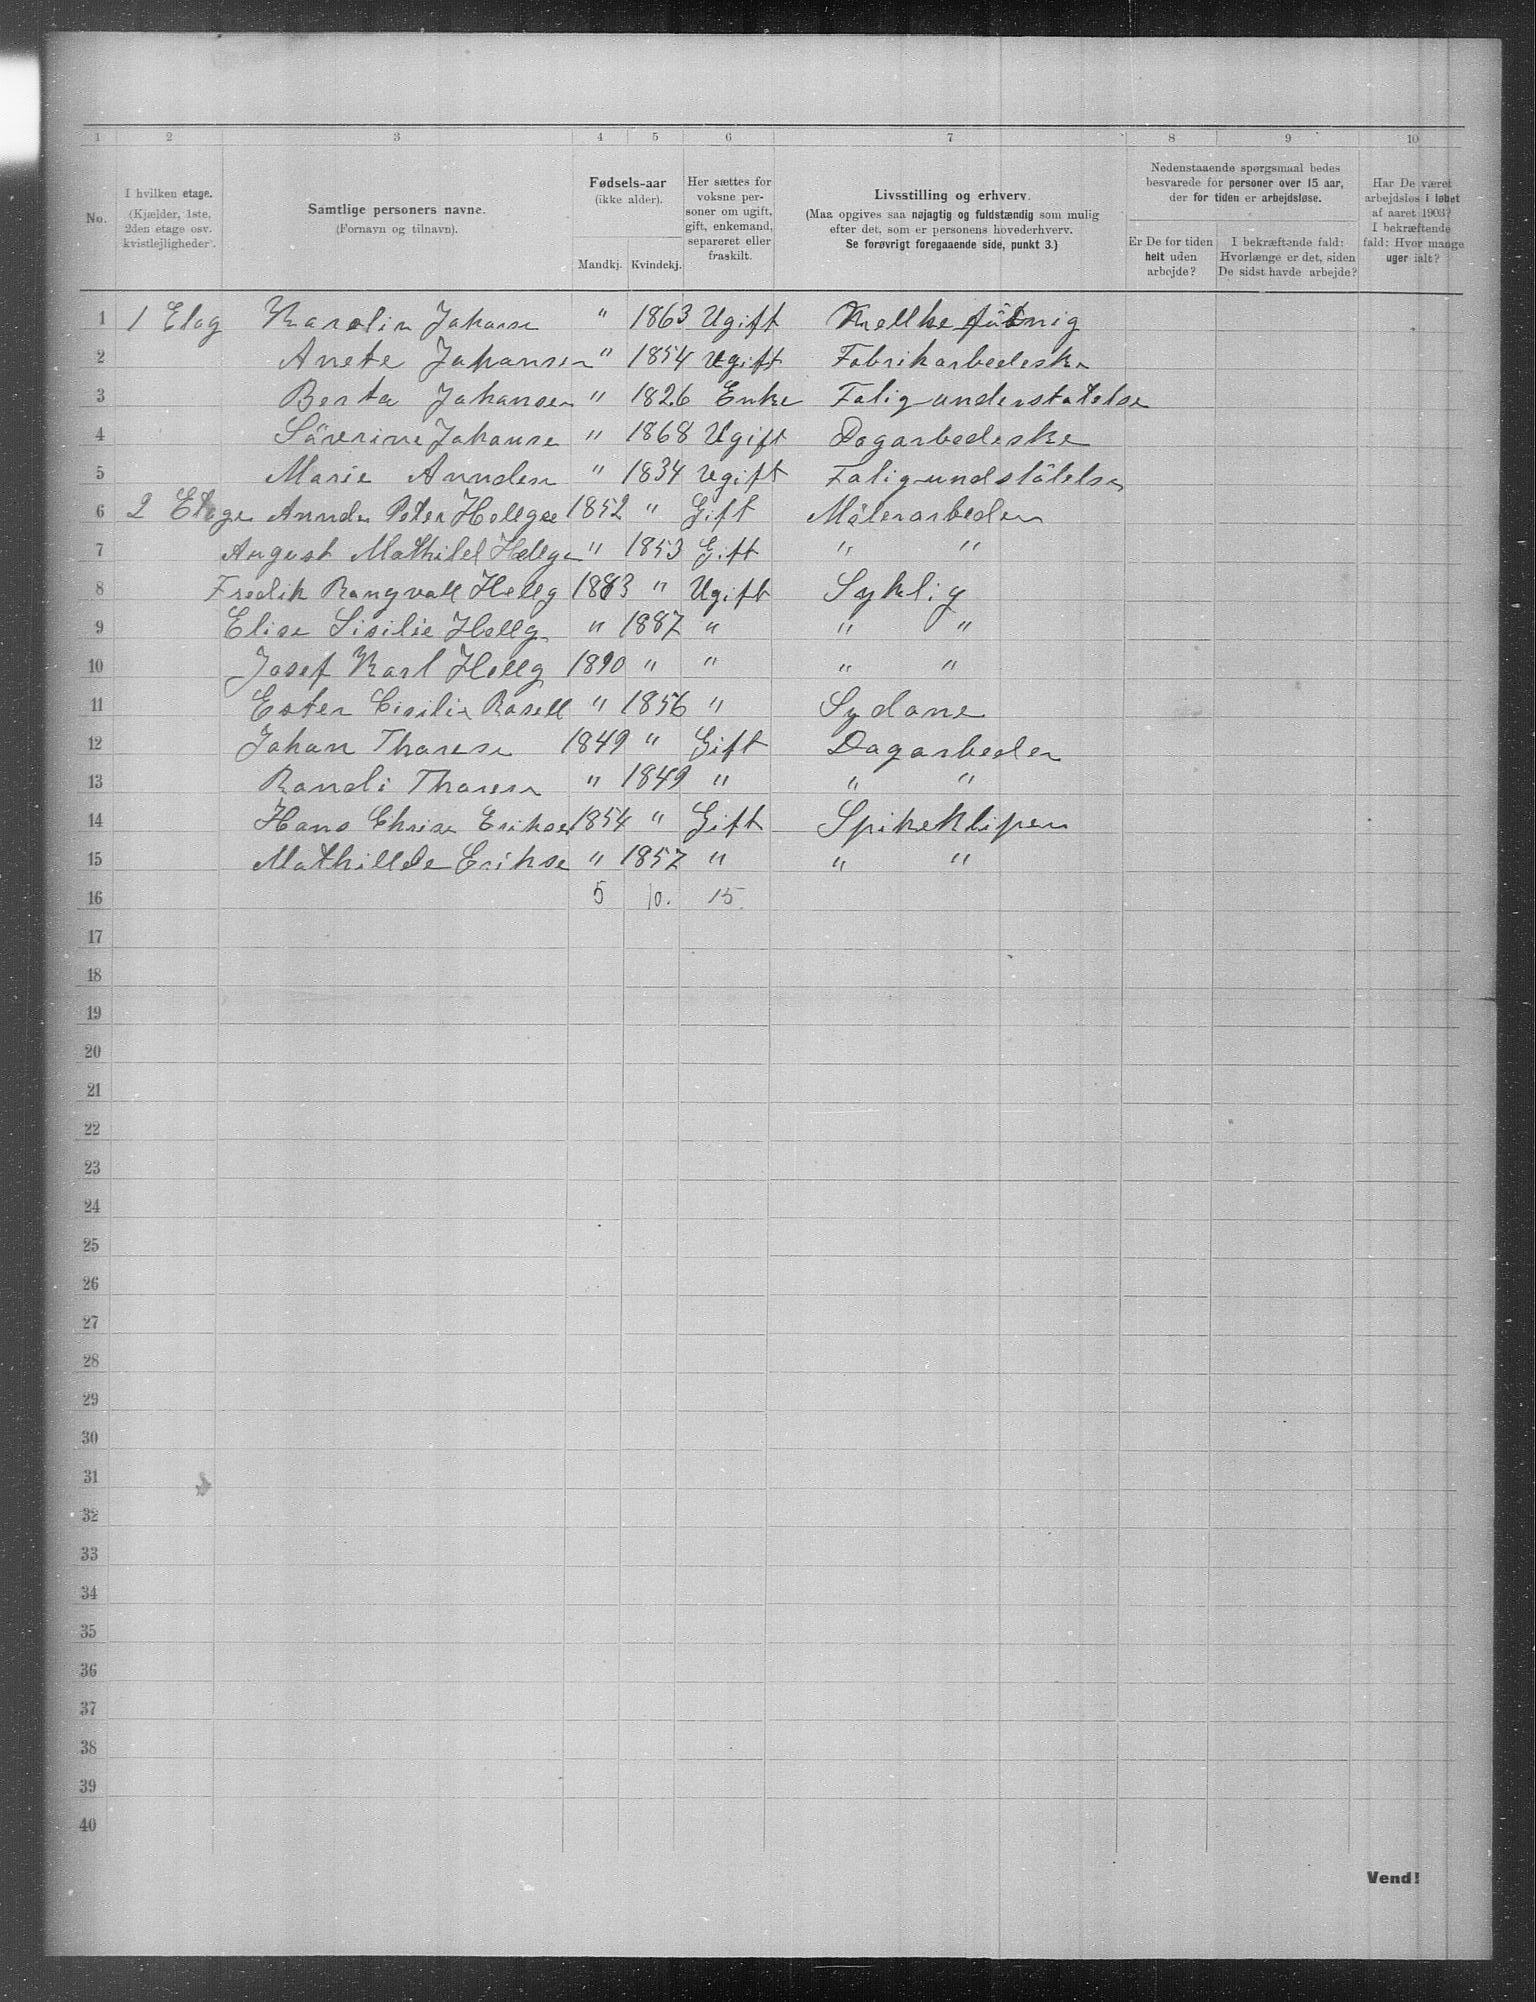 1 2 3 4 5 6 7 8 9 10
No.
I hvilken etage.
(Kjælder, 1ste,
2den etage osv.
kvistlejligheder).
Samtlige personers navne.
(Fornavn og tilnavn).
Fødsels-aar
(ikke alder).
Mandkj. Kvindekj.
Her sættes for
voksne per-
soner om ugift,
gift, enkemand,
separeret eller
fraskilt.
Livsstilling og erhverv.
(Maa opgives saa nøjagtig og fuldstændig som mulig
efter det, som er personens hovederhverv.
Se forøvrigt foregaaende side, punkt 3.)
Nedenstaaende spørgsmaal bedes
besvarede for personer over 15 aar,
der for tiden er arbejdsløse.
Er De for tiden
helt uden
arbejde?
I bekræftende fald:
Hvorlænge er det, siden
De sidst havde arbejde?
Har De været
arbejdsløs i løbet
af aaret 1903?
I bekræftende
fald: Hvor mange
uger ialt?
1 1 Etag Karolin Johanse " 1863 Ugift Mellke
2 Anete Johansen " 1854 Ugift Fabrikarbedeske
3 Berta Johansen " 1826 Enke Fatigunderstatelse
4 Säverine Johanse " 1868 Ugift Dagarbedeske
5 Marie Annden " 1834 Ugift Fatigundstätelse
6 2 Etage Annde Peter Hellgee 1852 " Gift Mälerarbeder
7 August Mathilel Hellge " 1853 Gift " "
8 Fredik Rangvall Hellg 1883 " Ugift Syklig
9 Elise Sisilie Hellg " 1887 " " "
10 Josef Karl Hellg 1890 " " " "
11 Ester Cisilie Rosell " 1856 " Sydane
12 Johan Thorese 1849 " Gift Dagarbeder
13 Randi Thorese " 1849 " " "
14 Hans Chrise Erikse 1854 " Gift Spikekliper
15 Mathillde Erikse " 1857 " " "
16 5 10. 15
17
18
19
20
21
22
23
24
25
26
27
28
29
30
31
32
33
34
35
36
37
38
39
40
Vend!